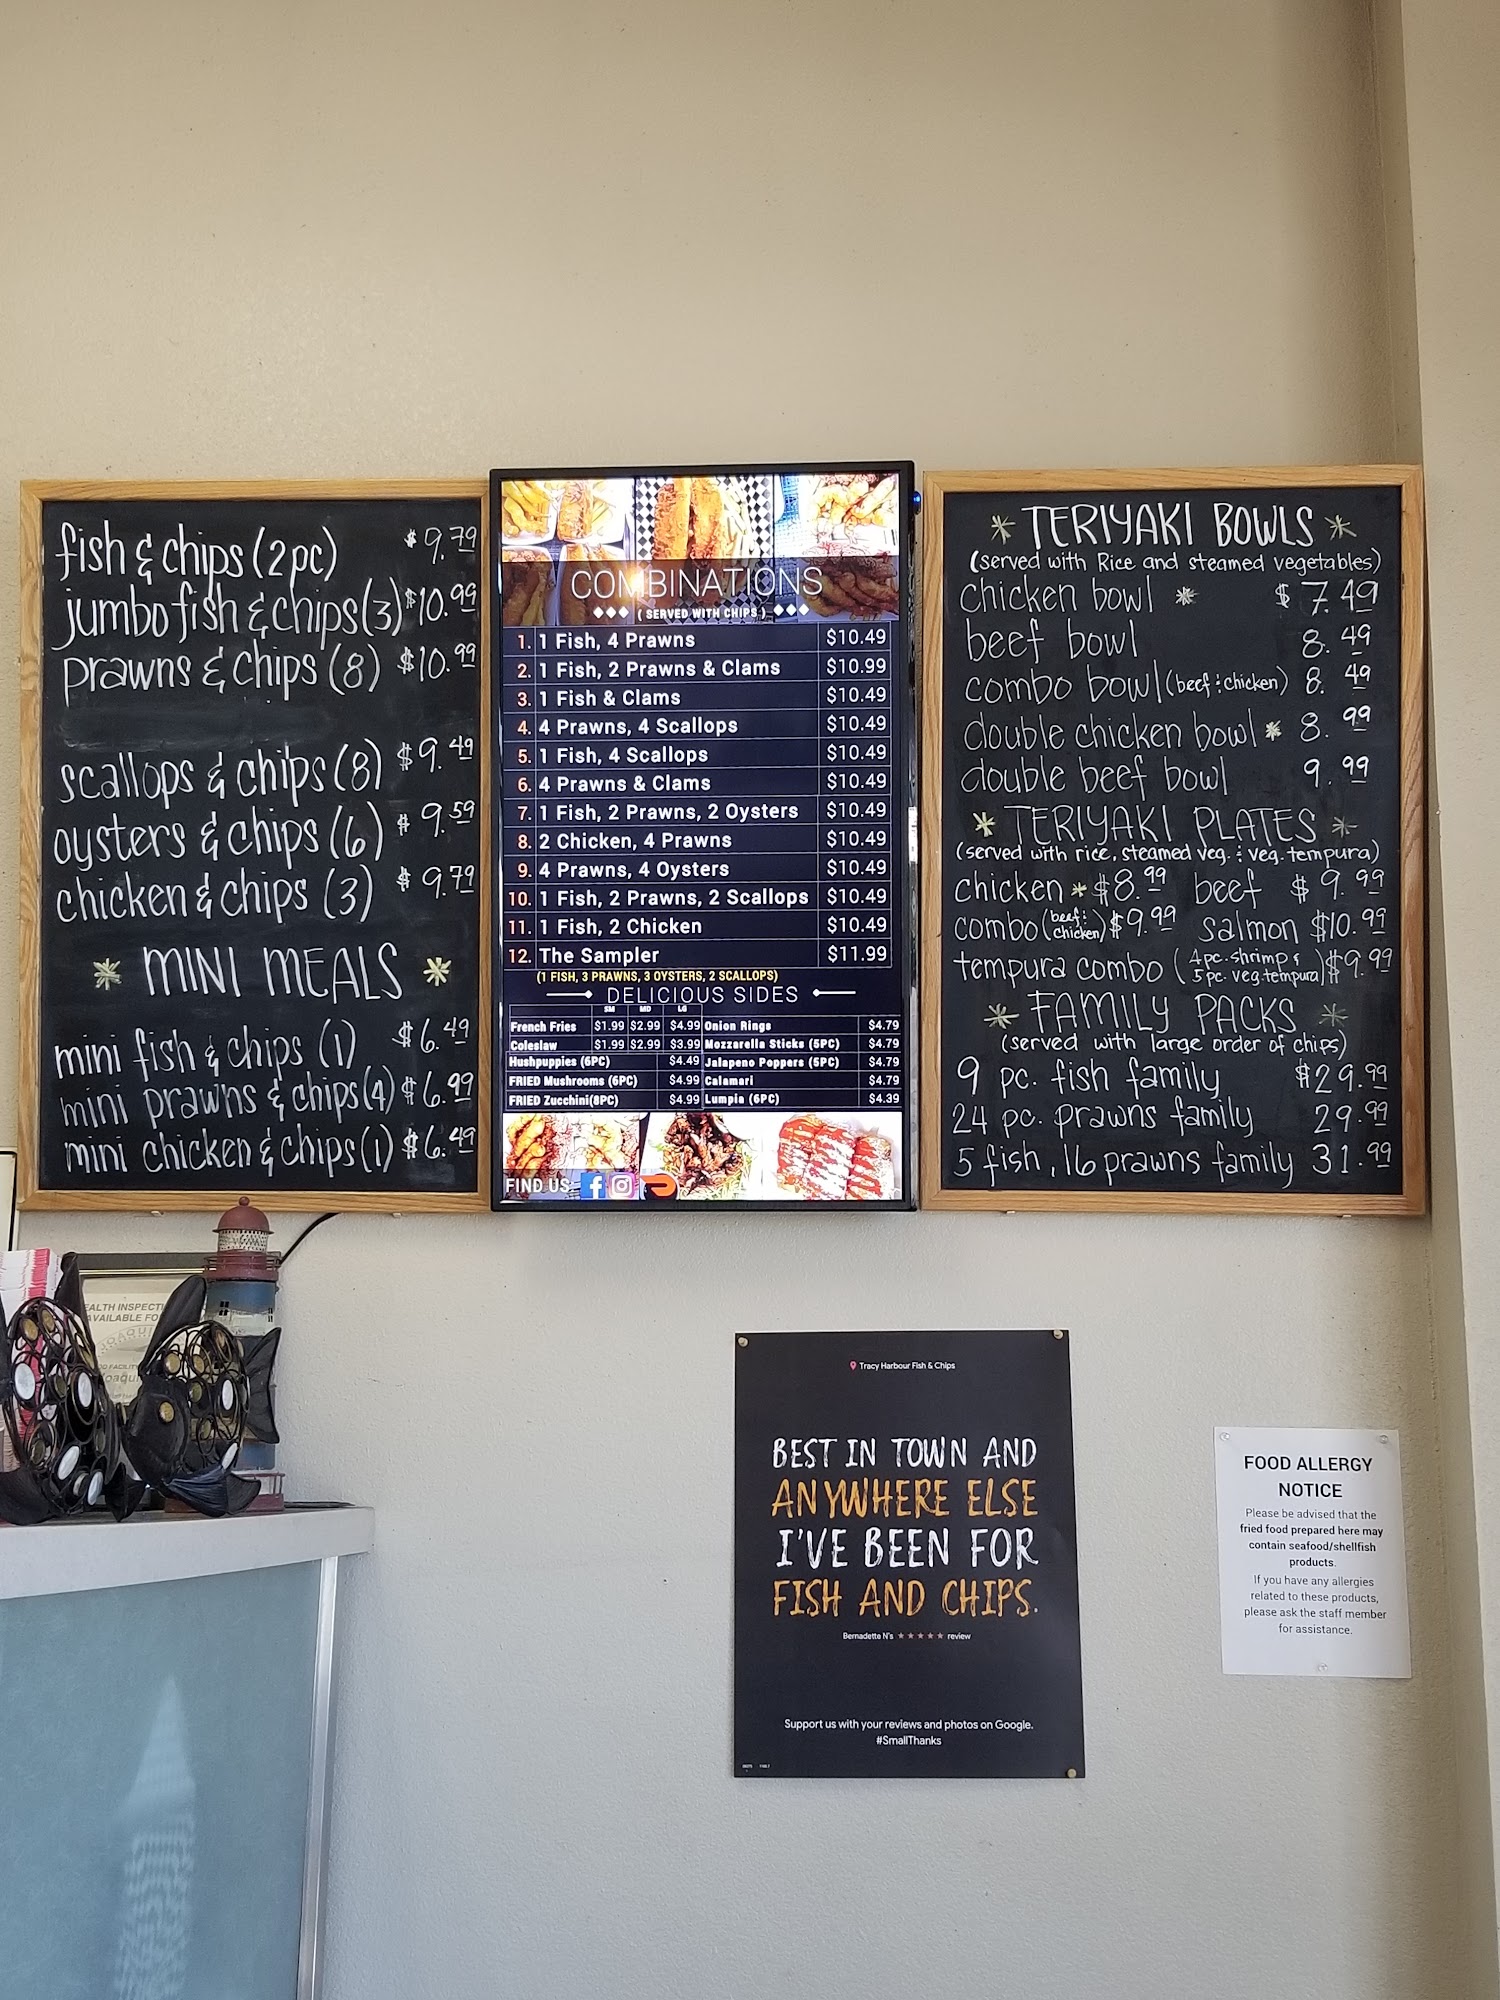 fish & chips (2pc) $9.79
jumbo fish & chips (3) $10.99
prawns & chips (8) $10.99
scallops & chips (8) $9.49
oysters & chips (6) $9.59
chicken & chips (3) $9.79
* MINI MEALS *
mini fish & chips (1) $6.49
mini prawns & chips (4) $6.99
mini chicken & chips (1) $6.49
COMBINATIONS
( SERVED WITH CHIPS )
1. 1 Fish, 4 Prawns $10.49
2. 1 Fish, 2 Prawns & Clams $10.99
3. 1 Fish & Clams $10.49
4. 4 Prawns, 4 Scallops $10.49
5. 1 Fish, 4 Scallops $10.49
6. 4 Prawns & Clams $10.49
7. 1 Fish, 2 Prawns, 2 Oysters $10.49
8. 2 Chicken, 4 Prawns $10.49
9. 4 Prawns, 4 Oysters $10.49
10. 1 Fish, 2 Prawns, 2 Scallops $10.49
11. 1 Fish, 2 Chicken $10.49
12. The Sampler $11.99
(1 FISH, 3 PRAWNS, 3 OYSTERS, 2 SCALLOPS)
DELICIOUS SIDES
SM MD LG
French Fries $1.99 $2.99 $4.99 Onion Rings $4.79
Coleslaw $1.99 $2.99 $3.99 Mozzarella Sticks (5PC) $4.79
Hushpuppies (6PC) $4.49 Jalapeno Poppers (5PC) $4.79
FRIED Mushrooms (6PC) $4.99 Calamari $4.79
FRIED Zucchini(8PC) $4.99 Lumpia (6PC) $4.39
FIND US
* TERIYAKI BOWLS *
(served with Rice and steamed vegetables)
chicken bowl * $7.49
beef bowl 8.49
combo bowl (beef & chicken) 8.49
double chicken bowl * 8.99
double beef bowl 9.99
* TERIYAKI PLATES *
(served with rice, steamed veg. & veg. tempura)
chicken * $8.99 beef $9.99
combo (beef & chicken) $9.99 salmon $10.99
tempura combo (4pc. shrimp & 5pc. veg. tempura) $9.99
* FAMILY PACKS *
(served with large order of chips)
9 pc. fish family $29.99
24 pc. prawns family 29.99
5 fish, 16 prawns family 31.99
EALTH INSPECTI
AVAILABLE FO
Tracy Harbour Fish & Chips
BEST IN TOWN AND
ANYWHERE ELSE
I'VE BEEN FOR
FISH AND CHIPS.
Bernadette N's ★★★★★ review
Support us with your reviews and photos on Google.
#SmallThanks
FOOD ALLERGY
NOTICE
Please be advised that the
fried food prepared here may
contain seafood/shellfish
products.
If you have any allergies
related to these products,
please ask the staff member
for assistance.